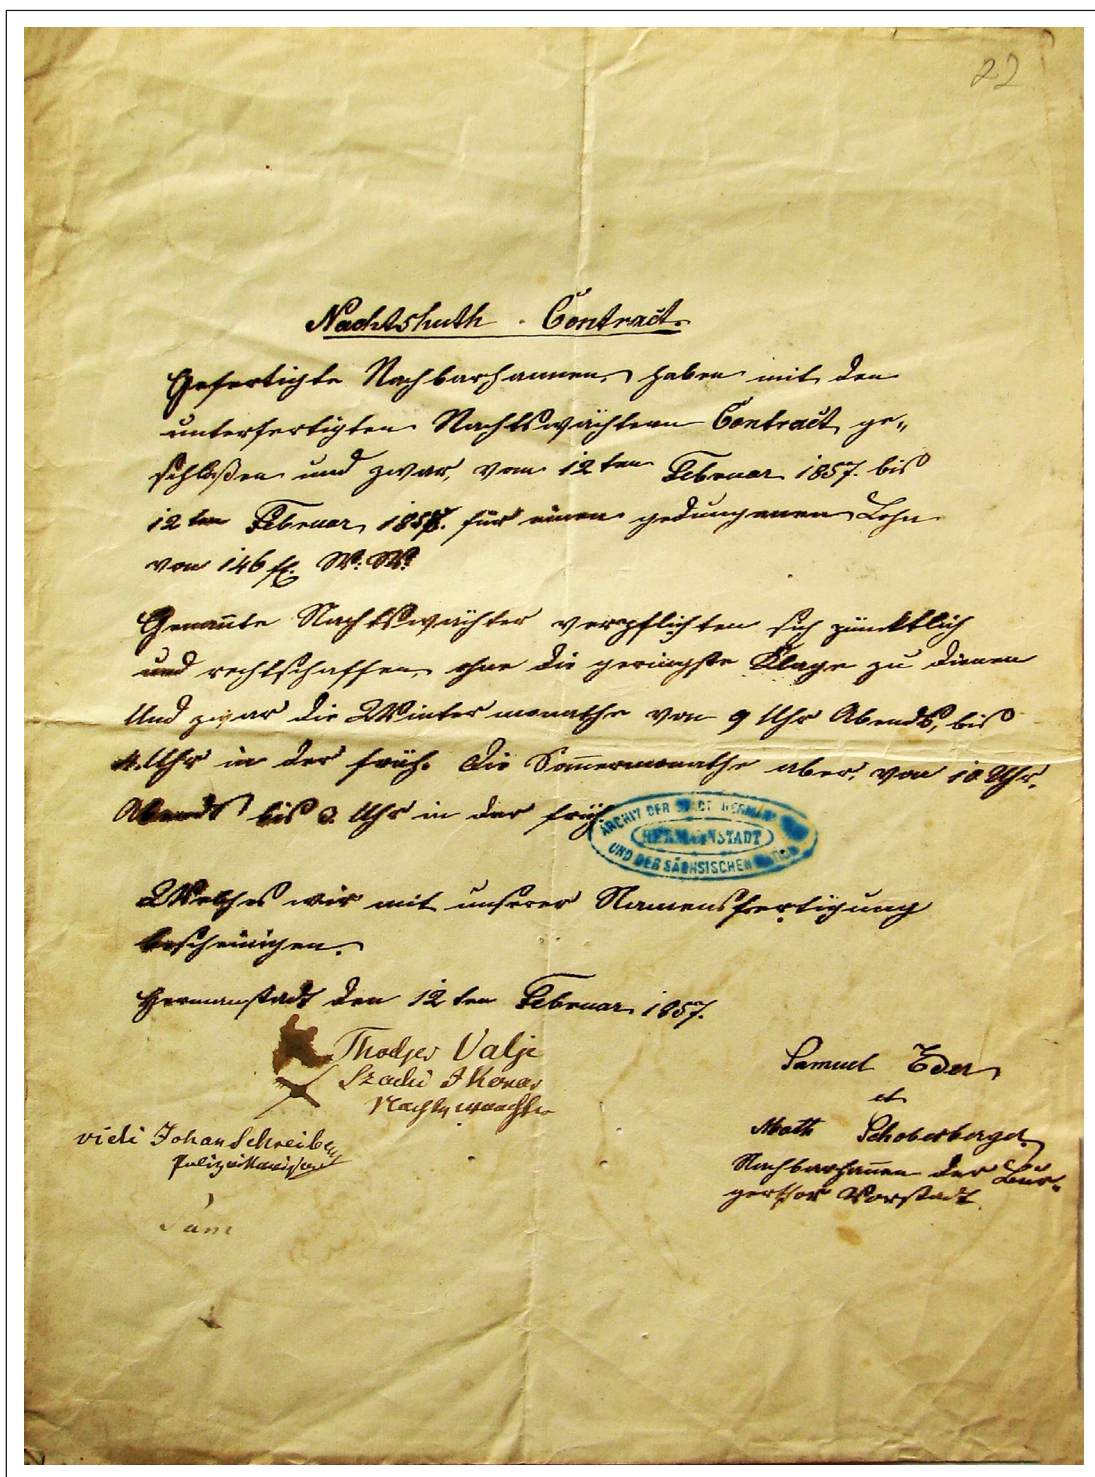 22
Nachtshuth - Contract.
Gefertigte Nachbarhannen, haben mit den
unterfertigten Nachtswächtern Contract ge„
schloßen und zwar, vom 12ten Februar 1857. bis
12ten Februar 1858. für einen gedungenen Lohn
von 146 fl. W: W:
Genannte Nachtswächter verpflichten sich pünktlich
und rechtschaffen, ohne die geringste Klage zu dienen
Und zwar die Winter monathe von 9 Uhr Abends, bis
4. Uhr in der früh. Die Sommermonathe aber, von 10 Uhr.
Abends bis 3. Uhr in der früh.
ARCHIV DER STADT HERMANNSTADT
HERMANNSTADT
UND DER SÄCHSISCHEN NATION
Welches wir mit unserer Namensfertigung
bescheinigen.
Hermanstadt den 12ten Februar 1857.
Thodjer Valje
Szachi
Nachtswaechter
Samuel Eder
et
Math Schoberberger
Nachbarhannen der Bür-
gerthor Vorstadt.
vidi Johan Schreiber